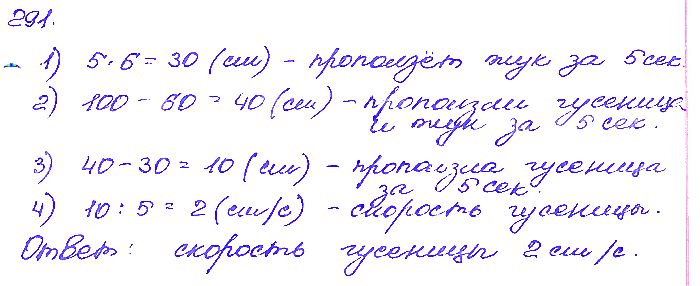 291.
1) 5·6 = 30 (см) – проползёт жук за 5 сек
2) 100 – 60 = 40 (см) – проползли гусеница
и жук за 5 сек.
3) 40 – 30 = 10 (см) – проползла гусеница
за 5 сек.
4) 10 : 5 = 2 (см/с) – скорость гусеницы.
Ответ: скорость гусеницы 2 см/с.